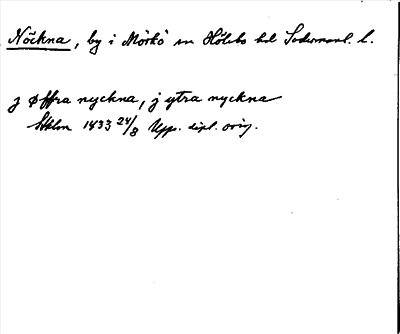 Nöckna, by i Mörkö sn Hölebo hd Södermanl. l.
j øffra nyckna, j ytra nyckna
Sthlm 1433 24/8 Upps. dipl. orig.